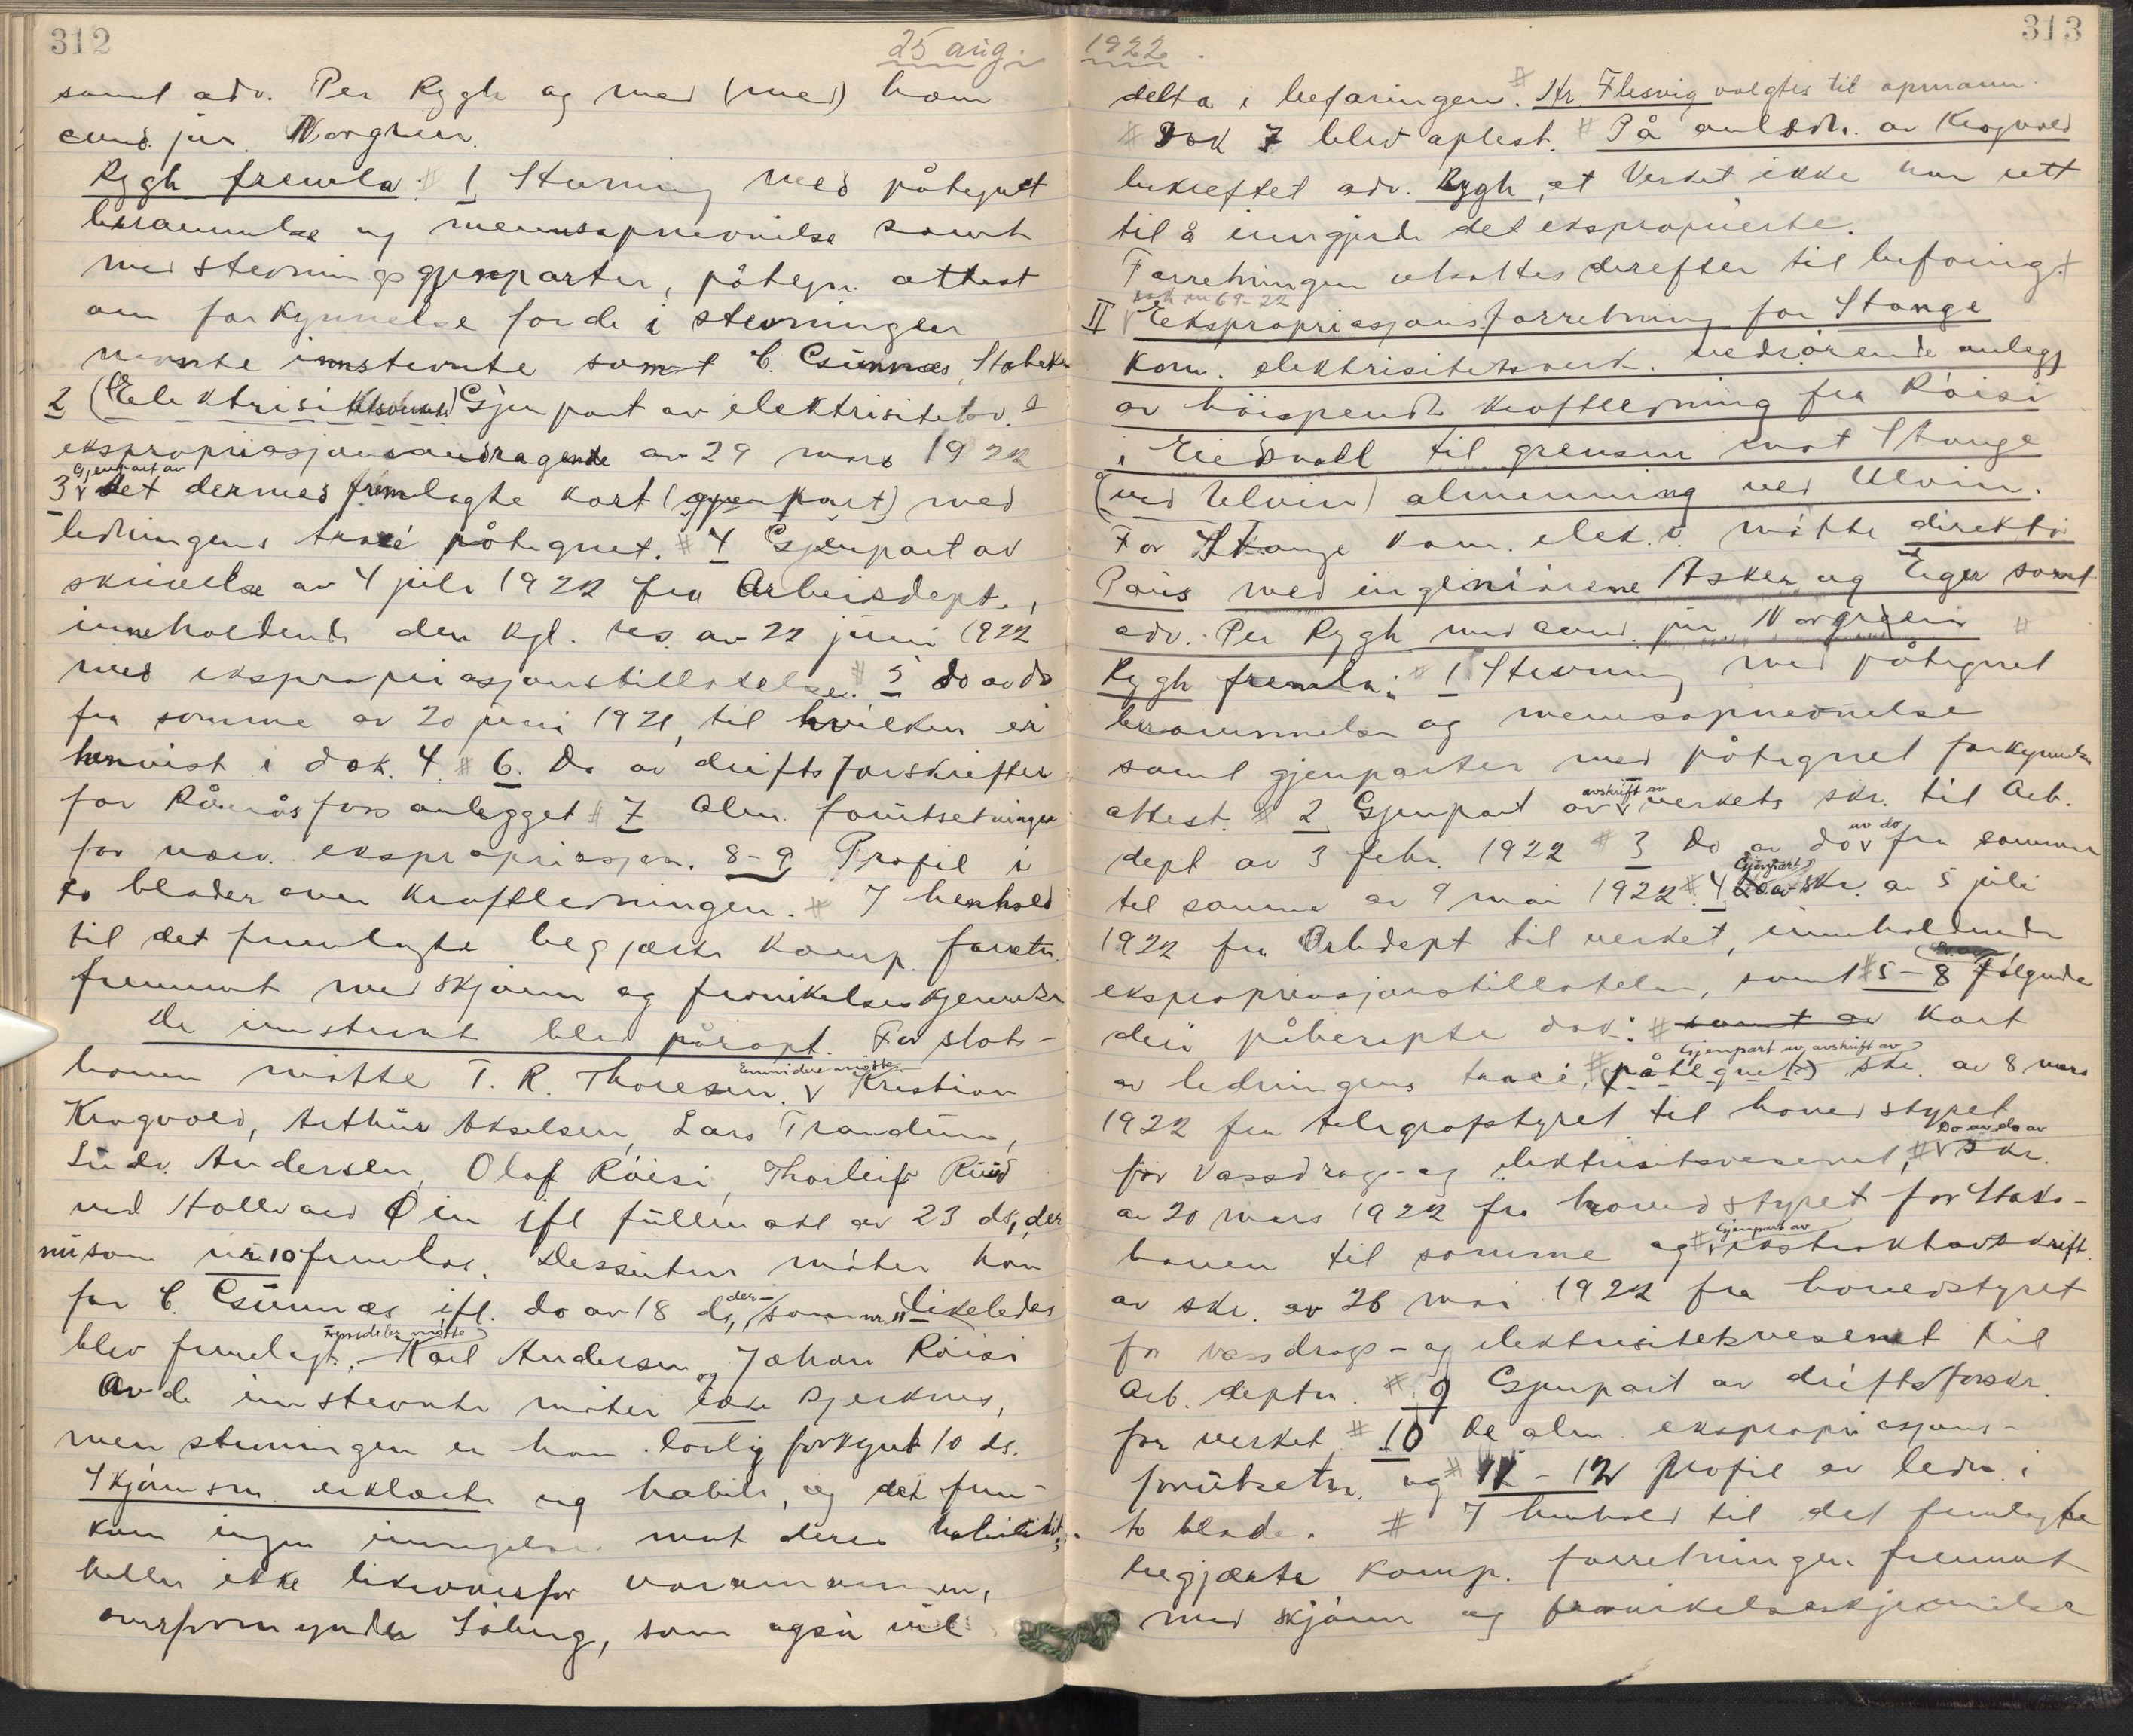 312
25 aug.
samt adv. Per Rygh og med (med) ham
cand. jur. Norgren.
Rygh fremla: # 1 Stevning med påtegnet
berammelse og mennsopnevnelse samt
med stevningsgjenparter, påtegn. attest
om forkynnelse for de i stevningen
nevnte innstevnte samt C. Gsünnæs, Stabekk
2 (Elektrisitetsverkets) Gjenpart av elektrisitetsv.s
ekspropriasjonsandragende av 29 mars 1922
Gjenpart av
3 v det dermed fremlagte kart (gjenpart) med
ledningens tracé påtegnet. # 4 Gjenpart av
skrivelse av 4 juli 1922 fra Arbeidsdept.,
inneholdende den kgl. res. av 22 juni 1922
med ekspropriasjonstillatelse. # 5 do av do
fra samme av 20 juni 1921, til hvilken er
henvist i dok. 4. # 6. Do av driftsforskrifter
for Rånåsfoss anlegget # 7 Alm. forutsetninger
for nærv. ekspropriasjon. 8-9 Profil i
to blader over kraftledningen. # I henhold
til det fremlagte begjærte komp. forretn.
fremmet med skjønn og fravikelseskjennelse
De innstevnte blev påropt. For stat-
Ennvidere møtte
hauen møtte T. R. Thoresen. v Kristian
Krogvold, Arthur Akselsen, Lars Trandum,
Ludv. Andersen, Olaf Röisi, Thorleif Ruud
ved Hallvard Öien ifl fullmakt av 23 ds, der
nu som nr 10 fremlas. Dessuten møter han
der-
for C. Gsünnæs ifl. do av 18 ds, som nr. 11 likeledes
Fremdeles møtte
blev fremlagt. Karl Andersen og Johan Röisi
Av de innstevnte møter ikke Bjerknes,
men stevningen er ham lovlig forkynt 10 ds.
Skjønnsm. erklærte sig habile, og det frem-
kom ingen innsigelse mot deres habilitet,
heller ikke likeoverfor varamannen,
overformynder Söberg, som også vil
1922.
313
delta i befaringen. # Kr. Flesvig valgtes til opmann
# Dok 7 blev oplest. # På anledn. av Krogvold
bekreftet adv. Rygh, at Verket ikke har rett
til å inngjerde det eksproprierte.
Forretningen utsattes derefter til befaring. #
sak nr 69-22
II v Ekspropriasjonsforretning for Stange
kom. elektrisitetsverk. vedrørende anlegg
av höispendt kraftledning fra Röisi
i Eidsvoll til grensen mot Stange
(ved Ulvin) almenning ved Ulvin.
For Stange kom. elek.v. møtte direktör
Paus med ingeniörene Asker og Eger samt
adv. Per Rygh med cand. jur Norgreen #
Rygh fremla: # 1 Stevning med påtegnet
berammelse og mennsopnevnelse
samt gjenparter med påtegnet forkynnelses
avskrift av
attest. # 2 Gjenpart av v verkets skr. til Arb.
av do
dept av 3 febr. 1922 # 3 Do av do v fra samme
Gjenpart
til samme av 9 mai 1922. # 4 do av skr. av 5 juli
1922 fra Arbdept til verket, inneholdende
ekspropriasjonstillatelse, samt # 5-8 følgende
deri påberopte dok: # samt av Kart
Gjenpart av avskrift av
av ledningens tracé, # (påtegnet) skr. av 8 mars
1922 fra telegrafstyret til hovedstyret
Do av do av
for Vassdrags- og elektrisitetsvesenet, # v skr.
av 20 mars 1922 fra hovedstyret for Stats-
Gjenpart av
banen til samme og # v ekstraktavskrift
av skr. av 26 mai 1922 fra hovedstyret
for vassdrags- og elektrisitetsvesenet til
Arb. deptn. # 9 Gjenpart av driftsforskr.
for verket # 10 De alm. ekspropriasjons-
forutsetn. og # 11-12 Profil av ledn. i
to blade. # I henhold til det fremlagte
begjærte komp. forretningen fremmet
med skjønn og fravikelseskjennelse